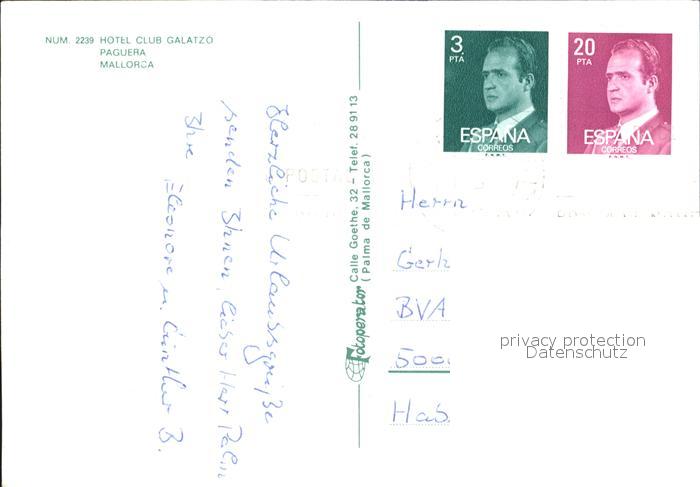 NUM. 2239 HOTEL CLUB GALATZO
PAGUERA
MALLORCA
Herzliche Urlaubsgrüße
senden Ihnen, lieber Herr Palm
Ihre
Eleonore u. Günther B.
Fotoperator Calle Goethe, 32 - Telef. 289113
(Palma de Mallorca)
3 PTA
ESPAÑA
CORREOS
F.N.M.T.
20 PTA
ESPAÑA
CORREOS
F.N.M.T.
Herrn
Gerh
BVA
500
Hab
privacy protection
Datenschutz